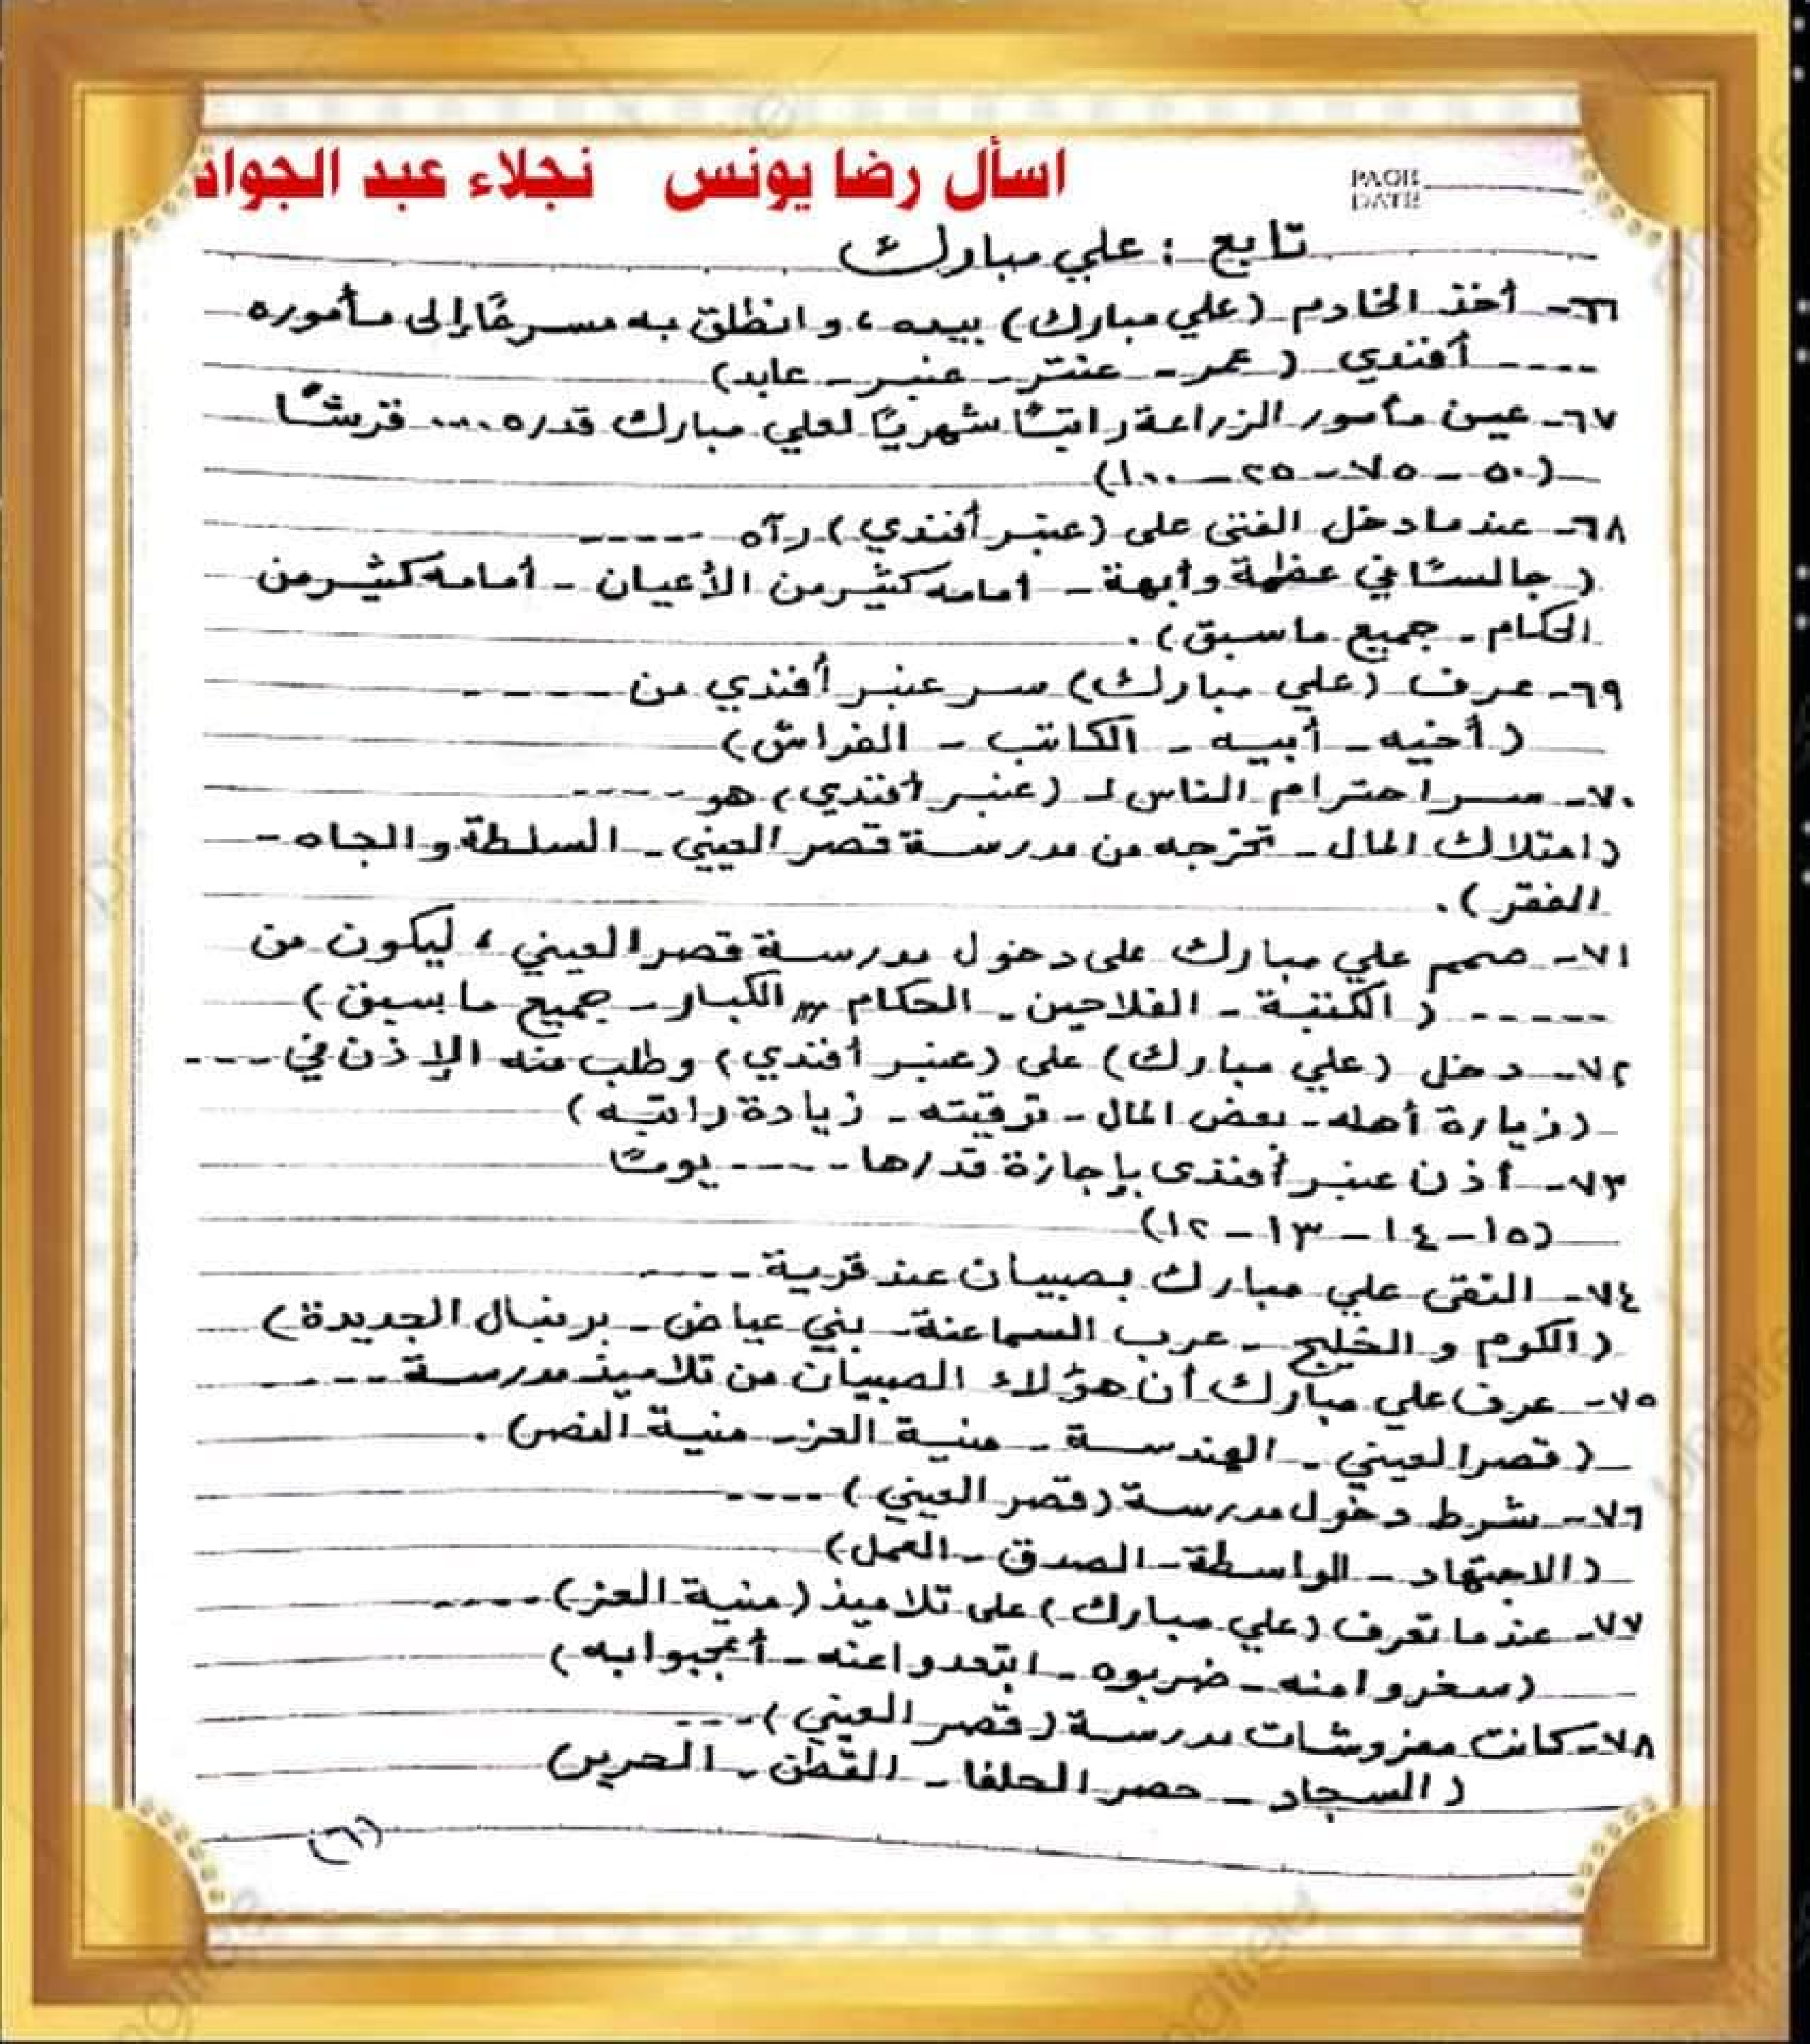 اسأل رضا يونس نجلاء عبد الجواد
PAGE
DATE
تابع : علي مبارك
٦٦- أخذ الخادم (علي مبارك) بيده ، وانطلق به مسرعًا إلى مأموره
---- أفندي ( عمر - عنتر - عنبر - عابد)
٦٧- عين مأمور الزراعة راتبًا شهريًا لعلي مبارك قدره .... قرشًا
(٥٠ - ٧٥ - ٢٥ - ١٠٠)
٦٨- عندما دخل الفتى على (عنبر أفندي) رآه -----
( جالسًا في عظمة وأبهة - أمامه كثير من الأعيان - أمامه كثير من
الحكام - جميع ما سبق ) .
٦٩- عرف (علي مبارك) سر عنبر أفندي من ----
( أخيه - أبيه - الكاتب - الفراش)
٧٠- سر احترام الناس لـ (عنبر أفندي) هو ----
( امتلاك المال - تخرجه من مدرسة قصر العيني - السلطة والجاه -
الفقر ) .
٧١- صمم علي مبارك على دخول مدرسة قصر العيني ، ليكون من
----- ( الكتبة - الفلاحين - الحكام الكبار - جميع ما سبق )
٧٢- دخل (علي مبارك) على (عنبر أفندي) وطلب منه الإذن في ---
( زيارة أهله - بعض المال - ترقيته - زيادة راتبه )
٧٣- أذن عنبر أفندى بإجازة قدرها ---- يومًا
(١٥ - ١٤ - ١٣ - ١٢)
٧٤- التقى علي مبارك بصبيان عند قرية ----
( الكوم والخليج - عرب السماعنة - بني عياض - برنبال الجديدة )
٧٥- عرف علي مبارك أن هؤلاء الصبيان من تلاميذ مدرسة ----
( قصر العيني - الهندسة - منية العز - منية النصر) .
٧٦- شرط دخول مدرسة (قصر العيني ) ----
( الاجتهاد - الواسطة - الصدق - العمل)
٧٧- عندما تعرف (علي مبارك ) على تلاميذ (منية العز) ----
(سخروا منه - ضربوه - ابتعدوا عنه - أعجبوا به )
٧٨- كانت مفروشات مدرسة (قصر العيني ) ---
( السجاد - حصر الحلفا - القطن - الحرير)
(٦)